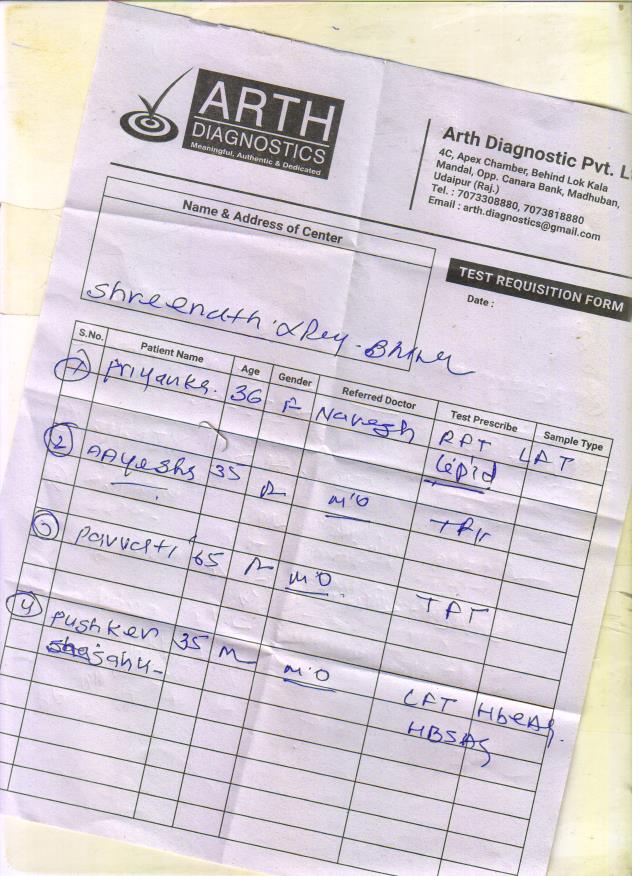 ARTH
DIAGNOSTICS
Meaningful, Authentic & Dedicated
Arth Diagnostic Pvt. L
4C, Apex Chamber, Behind Lok Kala
Mandal, Opp. Canara Bank, Madhuban,
Udaipur (Raj.)
Tel. : 7073308880, 7073818880
Email : arth.diagnostics@gmail.com
Name & Address of Center
TEST REQUISITION FORM
Date :
Shreenath
S.No. Patient Name Age Gender Referred Doctor Test Prescribe Sample Type
1 Priyanka. 36 F RFT LFT
Lipid
2 35 F M'O
3 Parvati 65 F M'O TFT
4 Pushker 35 M M'O LFT HbeAg.
HBSAg